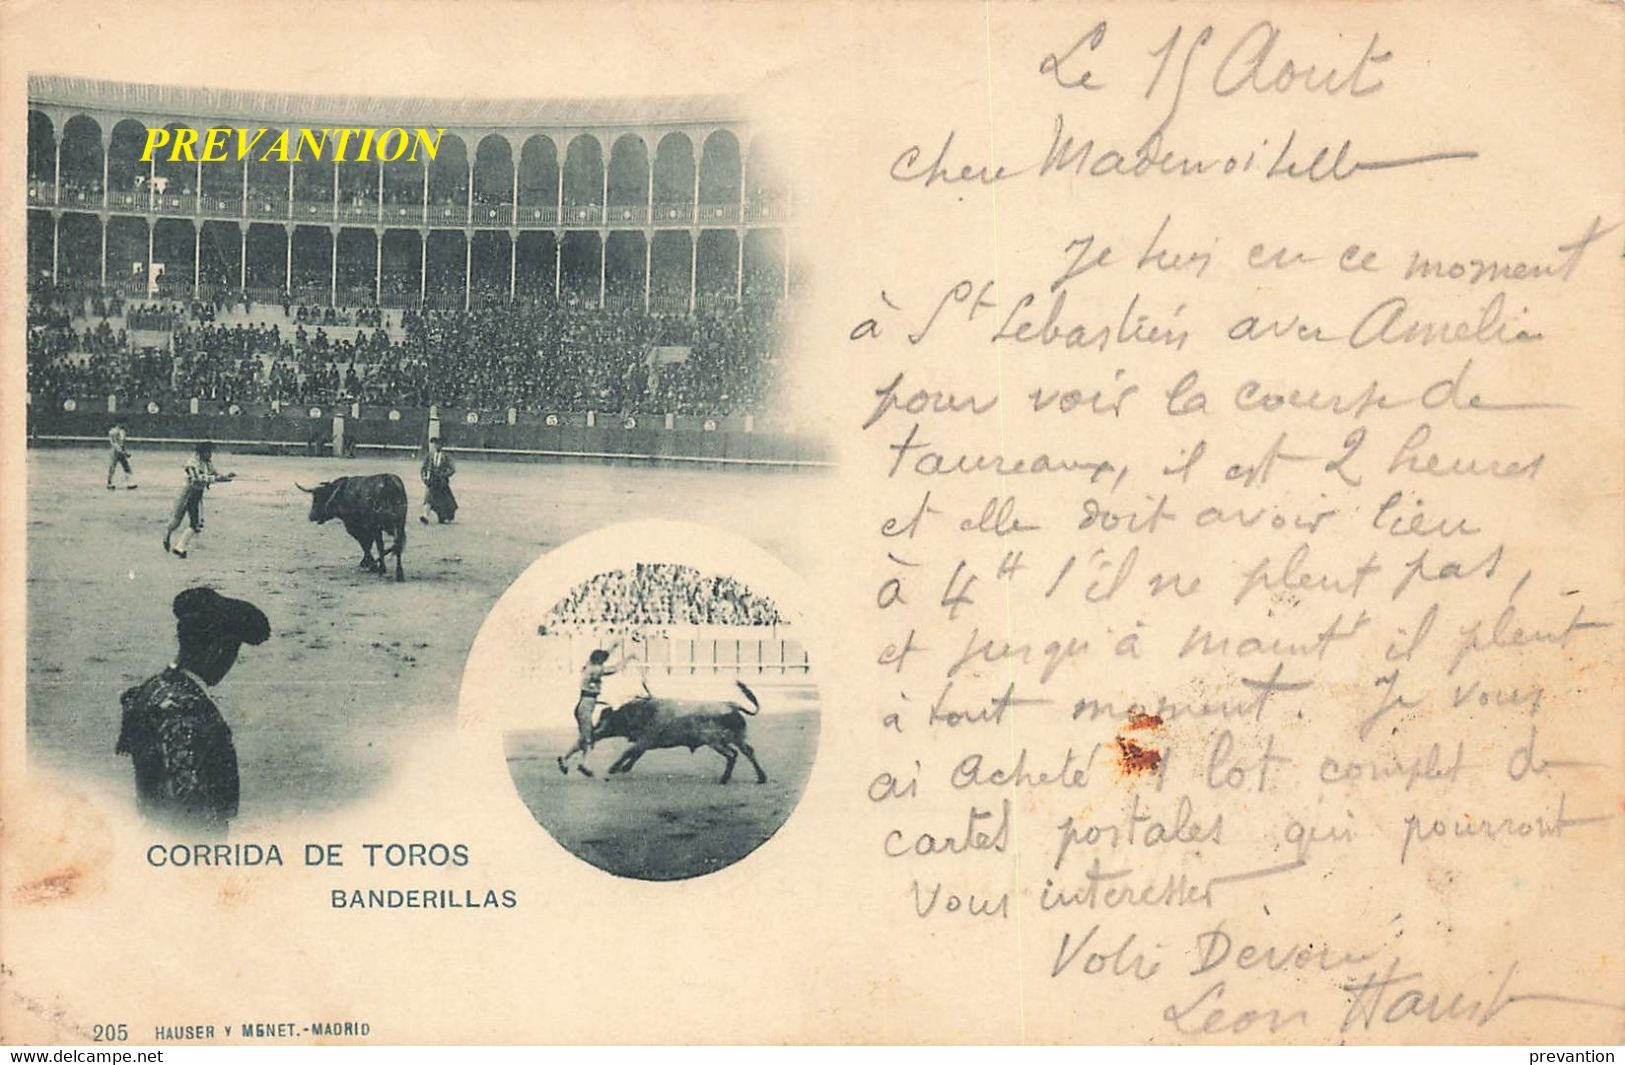 PREVANTION
CORRIDA DE TOROS
BANDERILLAS
205 HAUSER Y MENET.-MADRID
Le 15 Aout
Chere Mademoiselle
Je suis en ce moment
à St Sebastien avec Amélia
pour voir la course de
taureaux, il est 2 heures
et elle doit avoir lieu
à 4H s'il ne pleut pas,
et jusqu'à maint' il pleut
à tout moment. Je vous
ai acheté 1 lot complet de
cartes postales qui pourront
vous interesser.
Votre Dévoué,
Leon
Website: delcampe.net
prevantion